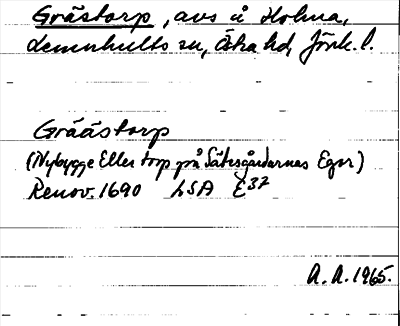 Gråstorp, avs å Holma,
Lemnhults sn, Östra hd, Jönk. l.
Grååstorp
(Nybygge Eller torp på Sätesgårdarnas Egor)
Renov. 1690 LSA E37
A. A. 1965.